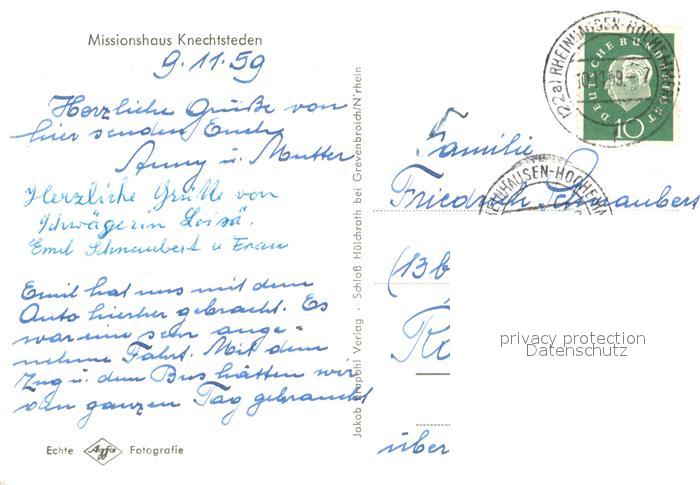 Missionshaus Knechtsteden
9.11.59
Herzliche Grüße von
hier senden Euch
Anny u. Mutter
Herzliche Grüße von
Schwägerin Loisä.
Emil Schnaubert u Frau
Emil hat uns mit dem
Auto hierher gebracht. Es
war eine sehr ange=
nehme Fahrt. Mit dem
Zug u. dem Bus hätten wir
den ganzen Tag gebraucht
Echte Agfa Fotografie
Jakob Krapohl Verlag · Schloß Hülchrath bei Grevenbroich/N'rhein
(22a) RHEINHAUSEN-HOCHEMMERICH
10.11.59.-7
DEUTSCHE BUNDESPOST
10
Familie
RHEINHAUSEN-HOCHEMM
Friedrich Schnaubert
(13b
über
privacy protection
Datenschutz